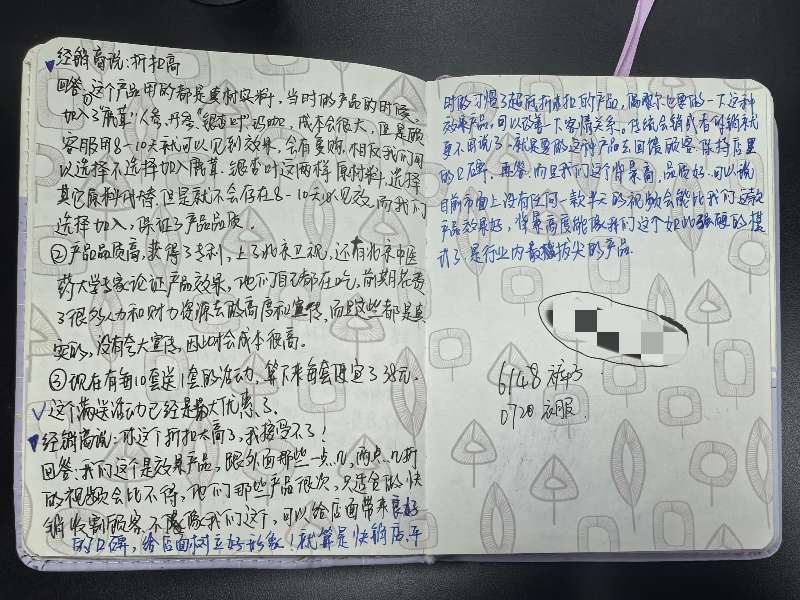 经销商说:折扣高
回答:①这个产品用的都是真材实料,当时的产品的时候,
加入了"鹿茸"人参、丹参、"银杏叶",成本会很大,但是顾
客服用8-10天就可以见到效果,会有复购,相反我们可
以选择不选择加入鹿茸、银杏叶这两样原材料,选择
其它原料代替,但是就不会存在8-10天必见效,而我们
选择加入,保证了产品品质。
②产品品质高,获得了专利,上了北京卫视,还有北京中医
药大学专家论证产品效果,他们自己都在吃,前期花费
了很多人力和财力资源去做高度和宣传,而且这些都是真
实的,没有夸大宣传,因此才会成本很高。
③现在有每10套送1套的活动,算下来每套便宜了38元.
这个满送活动已经是最大优惠了.
经销商说:你这个折扣太高了,我接受不了!
回答:我们这个是效果产品,跟外面那些一点几,两点几折
的视频会比不得,他们那些产品很次,只适合的快
销收割顾客.不像我们这个,可以给店面带来良好
的口碑,给店面树立好形象!就算是快销店,平
时的习惯了超低折虚扣的产品,偶尔也要的一下这种
效果产品,可以改善一下客情关系。传统会销或者时销就
更不用说了,就是要的这种产品去回馈顾客.保持店里
的口碑,再答.而且我们这个背景高,品质好.可以说
目前市面上没有任何一款大的视频会能比我们这款
产品效果好,背景高度能像我们这个如此强硬的模
式了,是行业内最拔尖的产品.
6148 裤子
0720 衣服